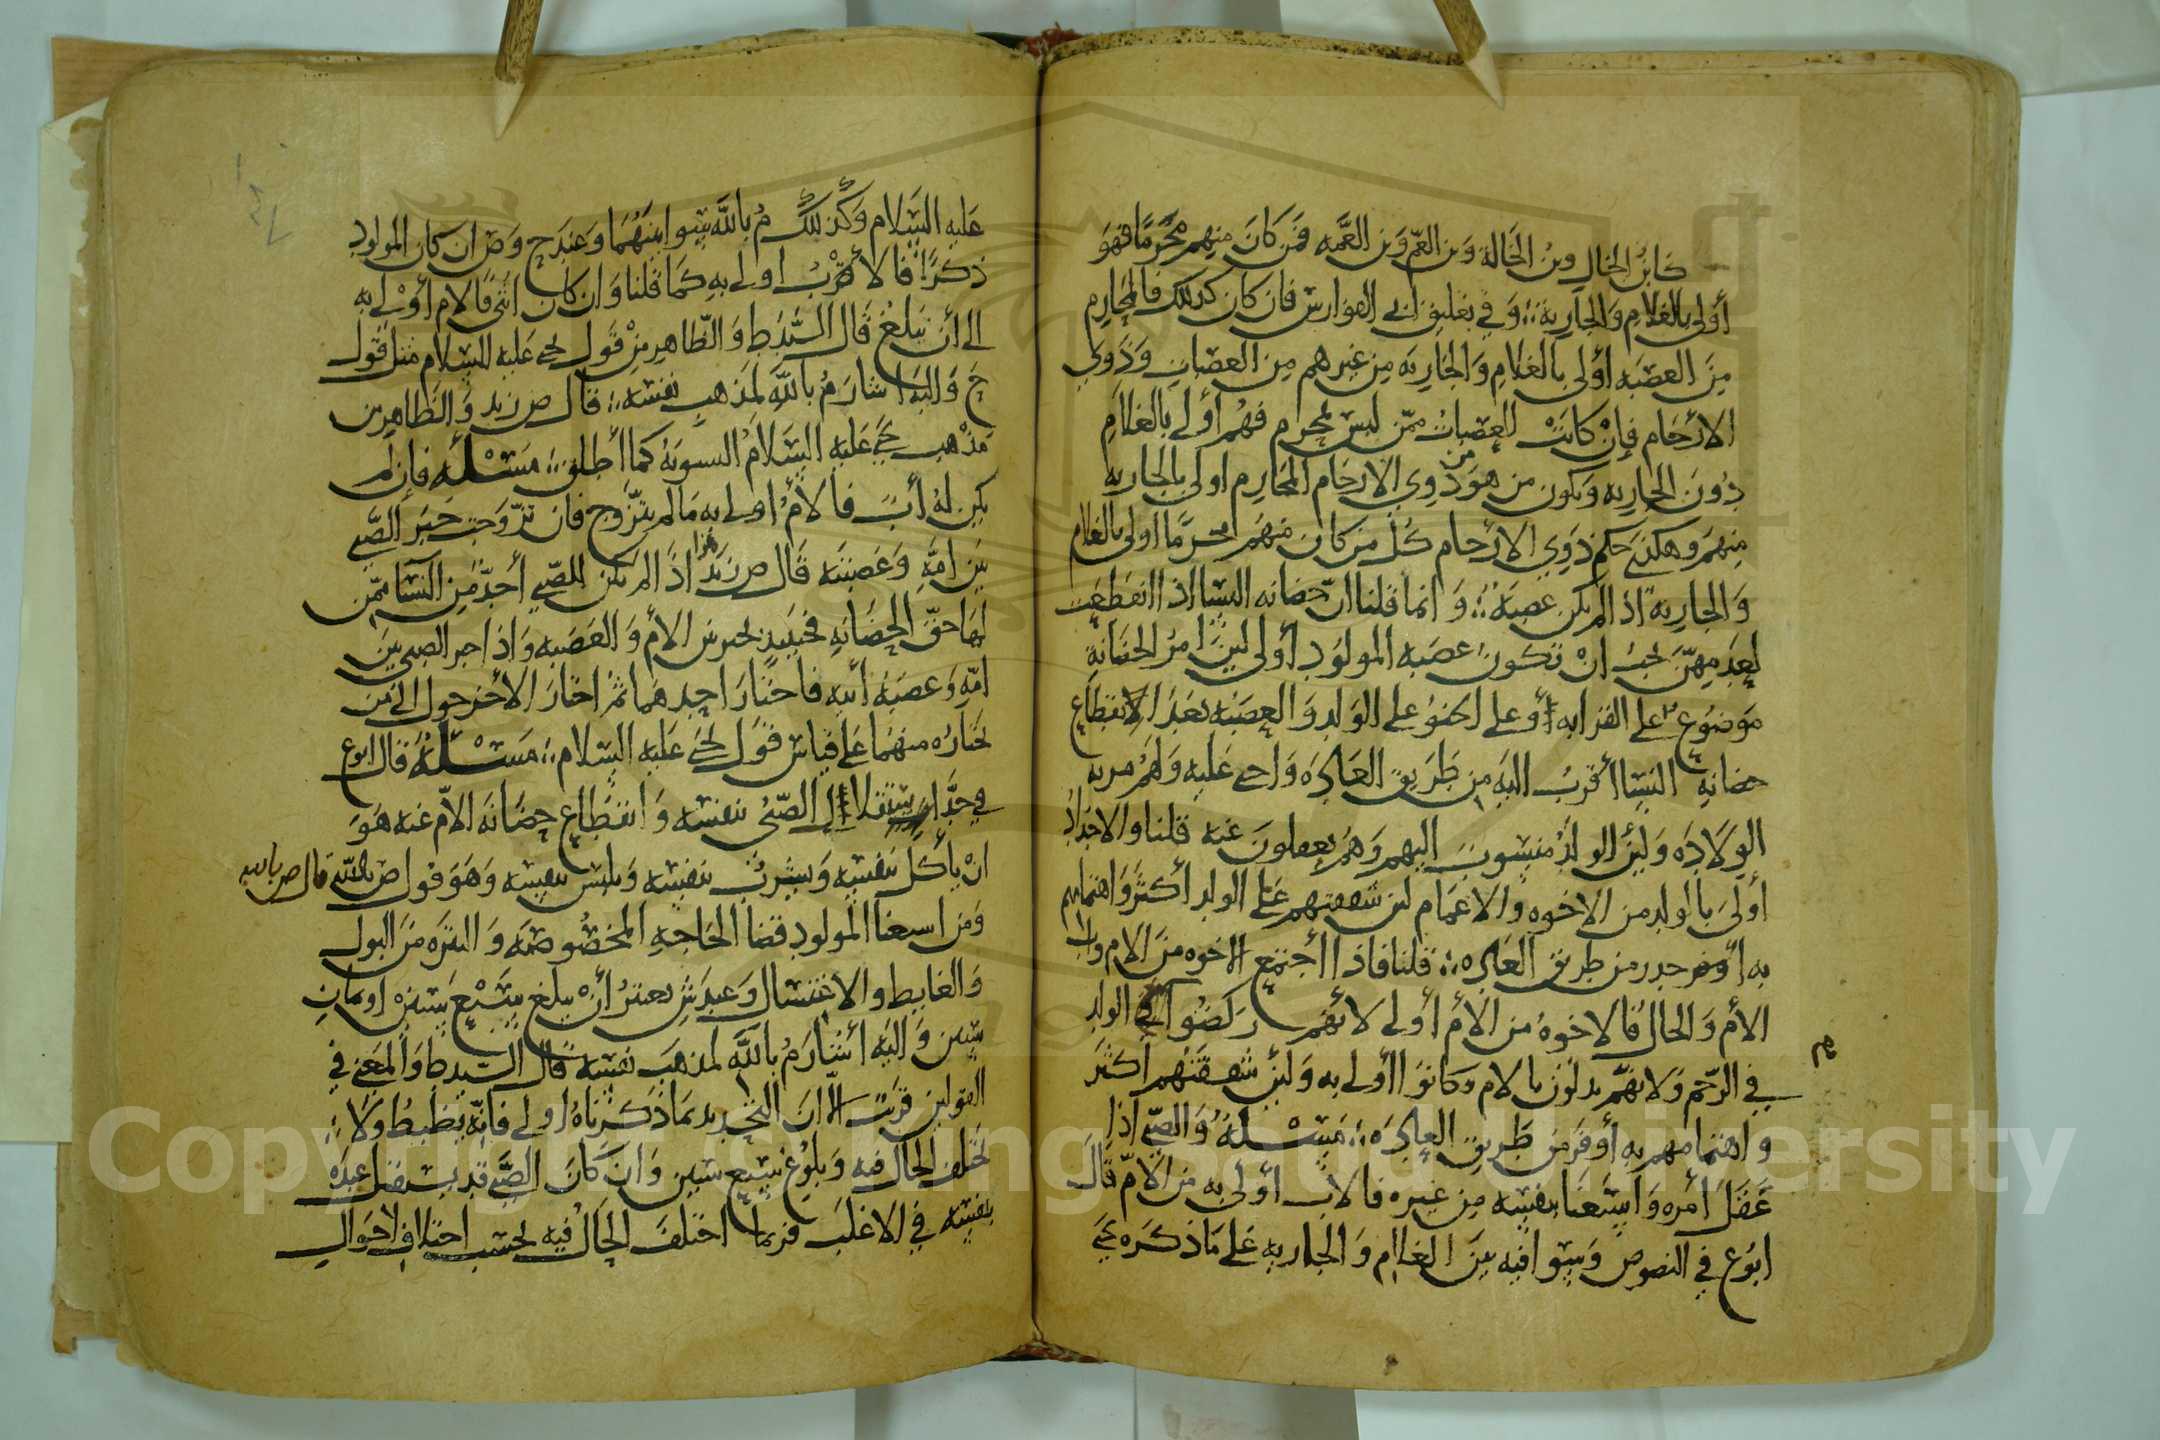 كابن الخال وبن الخالة وبن العم وبن العمه فمن كان منهم محرمًا فهو
أولى بالغلام والجاريه ؛ وفي تعليق ابي الفوارس فان كان كذلك فالمحارم
من العصبه أولى بالغلام والجاريه من غيرهم من العصبات وذوي
الارحام فإن كانت العصبات ممن ليس بمحرام فهم أولى بالغلام
دون الجاريه ويكون من هو من ذوي الارحام المحارم اولى بالجاريه
منهم وهكذى حكم ذوي الارحام كل من كان منهم محرمًا اولى بالغلام
والجاريه اذا لم يكن عصبة ؛ وانما قلنا ان حضانه النسا اذا انقطعت
بعد مهن يجب ان تكون عصبه المولود أولى لين امر الحضانة
موضوع على القرابه أو على الحنو على الولد والعصبه بعد الانقطاع
حضانة النسا أقرب اليه من طريق العادة واحنى عليه ولهم مزيه
الولاده ولين الولد منسوب اليهم وهم يعقلون عنه قلنا والاجداد
أولى بالولد من الاخوه والاعمام لين شفقتهم على الولد أكثر واهتمامهم
به أوفر من طريق العاده ؛ قلنا فاذا أجتمع الاخوه من الام واب
الأم والخال فالاخوه من الأم أولى لأنهم ركضوا في الولد
في الرحم ولانهم يدلون بالام وكانوا أولى به ولين شفقتهم أكثر
واهتمامهم به أوفر من طريق العادة ؛ مسئلة والصبي اذا
عقل أمره واستغنا بنفسه من غيره فالاب أولى به من الام قال
ابوع في النصوص وسوا فيه بين الغلام والجاريه على ما ذكره يحيى
عليه السلام وكذلك م بالله سوا بينهما وعند ح وص ان كان المولود
ذكرًا فالأقرب اولى به كما قلنا وان كان انثى فالام أولى به
الى أن تبلغ قال السيد ط والظاهر من قول يحيى عليه السلام مثل قول
ح واليه اشار م بالله لمذهب نفسه ؛ قال ص زيد والظاهر من
مذهب يحيى عليه السلام السويه كما أطلق ؛ مسئلة فإن لم
يكن له أب فالأم اولى به ما لم يتزوج فان تزوجت خير الصبي
بين امه وعصبته قال ص زيد هذا اذا لم يكن للصبي أحد من النسا ممن
لها حق الحضانة فحينيذ يخير بين الأم والعصبه واذا خير الصبي بين
امه وعصبة أبيه فاختار احدهما ثم اختار الأخر حول الى من
يختاره منهما على قياس قول يحيى عليه السلام ؛ مسئلة قال ابوع
في حد استقلال الصبي بنفسه وانقطاع حضانة الام عنه هو
ان يأكل بنفسه ويشرب بنفسه ويلبس بنفسه وهو قول ص بالله قال ص بالله
ومن استغنا المولود قضا الحاجه المخصوصه والتنزه من البول
والغايط والاغتسال وعند ش يعتبر أن يبلغ سبع سنين او ثمان
سنين واليه أشار م بالله لمذهب نفسه قال السيد ط والمعنى في
القولين قريب إلا ان التحديد بما ذكرناه اولى فانه ينضبط ولا
يختلف الحال فيه وبلوغ سبع سنين وان كان الصبي قد يستقل عنده
بنفسه في الاغلب فربما اختلف الحال فيه بحسب اختلاف الاحوال
Copyright © King Saud University